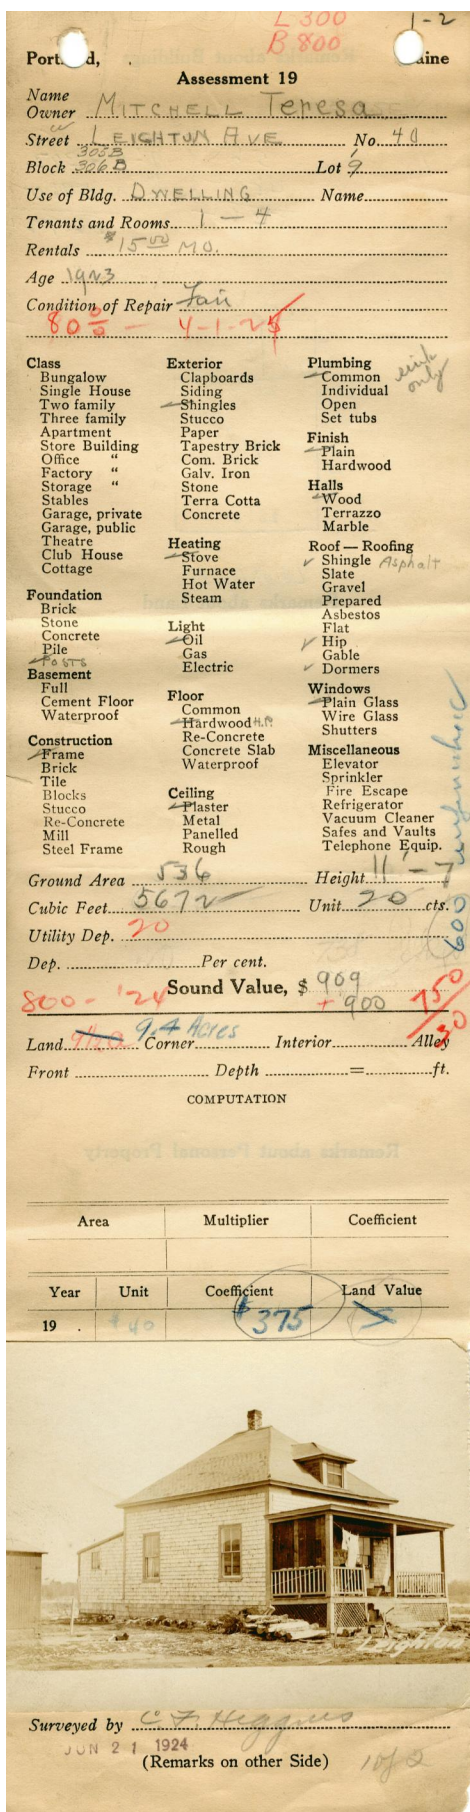 L 300
1-2
B 800
Portland, Maine
Assessment 19
Name
Owner MITCHELL Teresa
Street LEIGHTON AVE No. 40
305B
Block 306 B Lot 9
Use of Bldg. DWELLING Name
Tenants and Rooms 1 - 4
Rentals $15.00 MO.
Age 1923
Condition of Repair Fair
80% - 4-1-25
Class
Bungalow
Single House
Two family
Three family
Apartment
Store Building
Office "
Factory "
Storage "
Stables
Garage, private
Garage, public
Theatre
Club House
Cottage
Foundation
Brick
Stone
Concrete
Pile
✓ Posts
Basement
Full
Cement Floor
Waterproof
Construction
✓ Frame
Brick
Tile
Blocks
Stucco
Re-Concrete
Mill
Steel Frame
Exterior
Clapboards
Siding
✓ Shingles
Stucco
Paper
Tapestry Brick
Com. Brick
Galv. Iron
Stone
Terra Cotta
Concrete
Heating
✓ Stove
Furnace
Hot Water
Steam
Light
✓ Oil
Gas
Electric
Floor
Common
✓ Hardwood H.P.
Re-Concrete
Concrete Slab
Waterproof
Ceiling
✓ Plaster
Metal
Panelled
Rough
Plumbing
✓ Common sink only
Individual
Open
Set tubs
Finish
✓ Plain
Hardwood
Halls
✓ Wood
Terrazzo
Marble
Roof — Roofing
✓ Shingle Asphalt
Slate
Gravel
Prepared
Asbestos
Flat
✓ Hip
Gable
✓ Dormers
Windows
✓ Plain Glass
Wire Glass
Shutters
Miscellaneous
Elevator
Sprinkler
Fire Escape
Refrigerator
Vacuum Cleaner
Safes and Vaults
Telephone Equip.
600 unfinished
Ground Area 536 Height 11'-7
Cubic Feet 5672 Unit 20 cts.
Utility Dep. 20
Dep. Per cent.
Sound Value, $ 909
800 - '24 + 900 750
30
Land 9.4 Acres Corner Interior Alley
Front Depth = ft.
COMPUTATION
Area Multiplier Coefficient
Year Unit Coefficient Land Value
19 . $40 $375
Leighton
Surveyed by C. F. Higgins
JUN 21 1924
(Remarks on other Side) 1 of 2